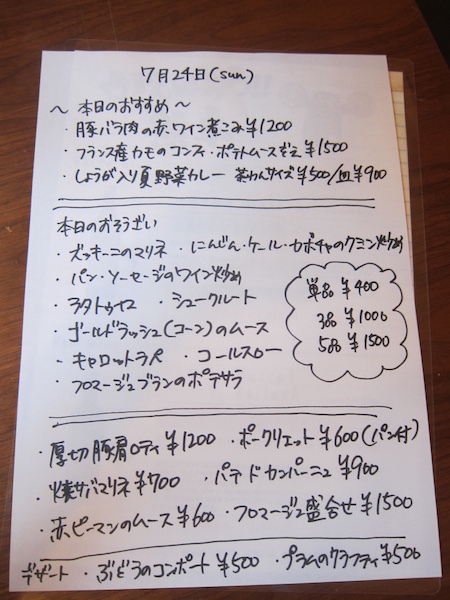 7月24日(sun)
〜 本日のおすすめ 〜
・豚バラ肉の赤ワイン煮こみ ¥1200
・フランス産カモのコンフィ・ポテトムース添え ¥1500
・しょうが入り夏野菜カレー 茶わんサイズ ¥500/皿 ¥900
本日のおそうざい
・ズッキーニのマリネ ・にんじん・ケール・カボチャのクミン炒め
・パン・ソーセージのワイン炒め
・ラタトゥユ ・シュークルート
・ゴールドラッシュ(コーン)のムース
・キャロットラペ ・コールスロー
・フロマージュブランのポテサラ
単品 ¥400
3品 ¥1000
5品 ¥1500
・厚切豚肩ロティ ¥1200 ・ポークリエット ¥600(パン付)
・燻サバマリネ ¥700 ・パテドカンパーニュ ¥900
・赤ピーマンのムース ¥600 ・フロマージュ盛合せ ¥1500
デザート ・ぶどうのコンポート ¥500 ・プラムのクラフティ ¥500